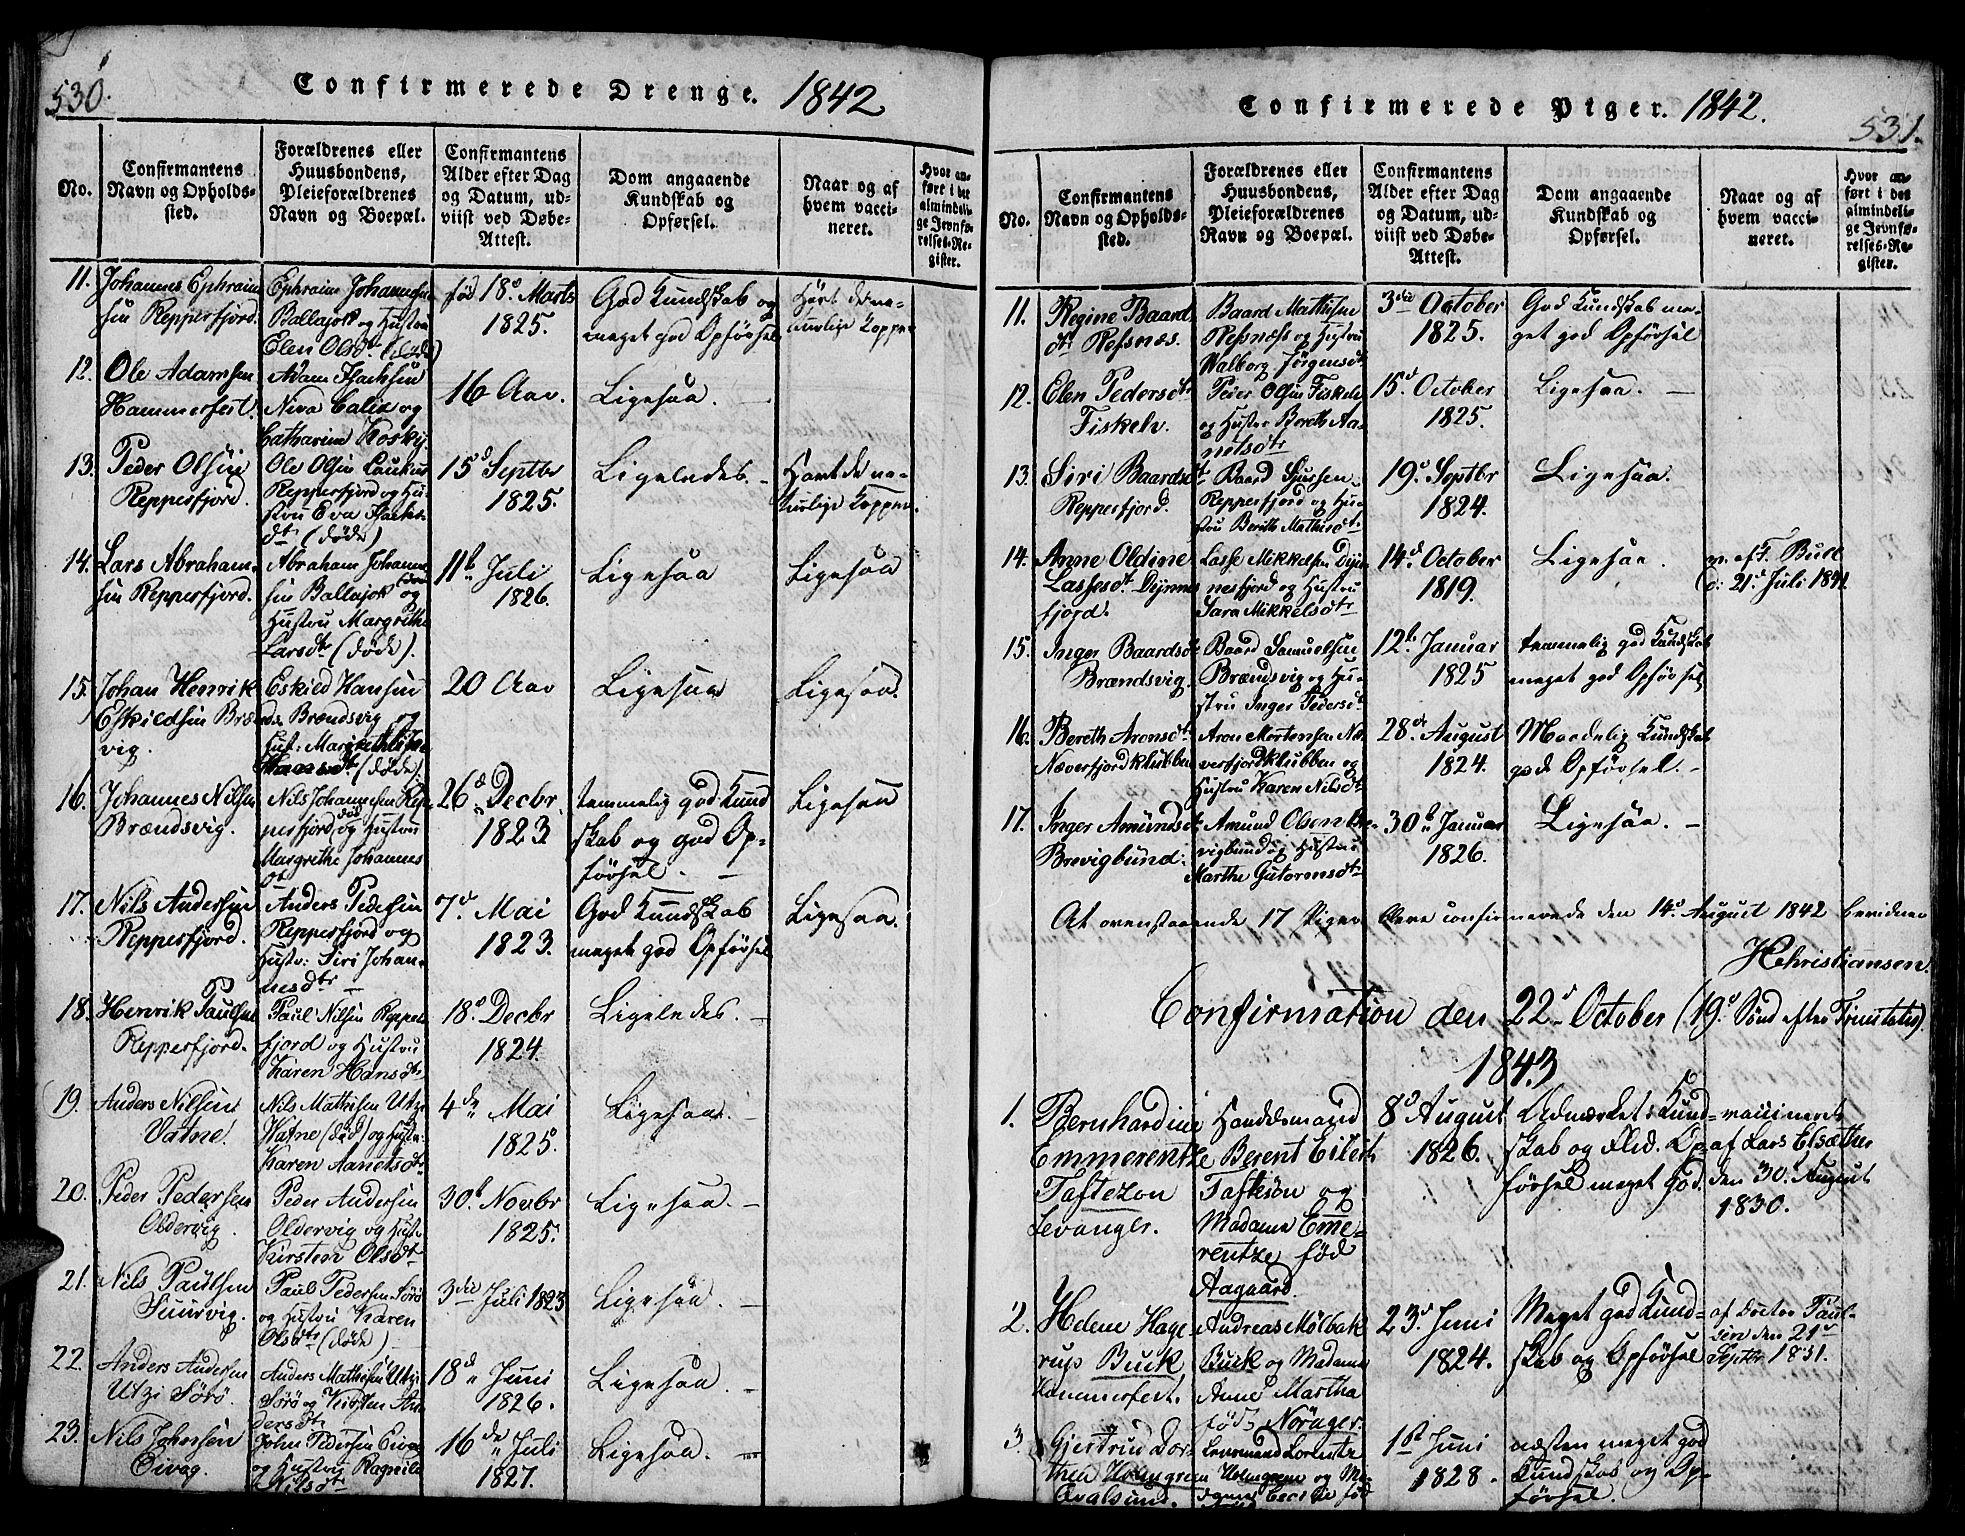 530.
Confirmerede Drenge. 1842
No.
Confirmantens
Navn og Opholds-
sted.
Forældrenes eller
Huusbondens,
Pleieforældrenes
Navn og Boepæl.
Confirmantens
Alder efter Dag
og Datum, ud-
viist ved Døbe-
Attest.
Dom angaaende
Kundskab og
Opførsel.
Naar og af
hvem vacci-
neret.
Hvor an-
ført i det
almindeli-
ge Jevnfø-
relses-Re-
gister.
11.
Johannes Ephraim
sen Repperfjord.
Ephraim Johannesen
Ballajok og Hustru
Elen Olsdtr (døde)
fød 18de Marts
1825.
God Kundskab og
meget god Opførsel
Havt de na-
turlige Kopper
12.
Ole Adamsen
Hammerfest.
Adam Isachsen
Niva Calix og
Catharina Kosky
16 Aar.
Ligesaa.
13.
Peder Olsen
Repperfjord.
Ole Olsen
Repperfjord og Hu-
stru Eva Isachs
dtr (døde)
15d Septbr
1825.
Ligeledes.
Havt de na-
turlige Kopper.
14.
Lars Abraham-
sen Repperfjord.
Abraham Johanne-
sen Ballajok og
Hustru Margrethe
Larsdtr (døde).
11te Juli
1826.
Ligesaa
Ligesaa
15.
Johan Henrik
Eskildsen Brænds
vig.
Eskild Hansen
Brændsvig og
Hust: (døde)
20 Aar
Ligesaa
Ligesaa.
16.
Johannes Nilsen
Brændsvig.
Nils Johannesen Rep-
perfjord og Hustru
Margrethe Johannes
dtr
26d Decbr.
1823
temmelig god Kund
skab og god Op-
førsel.
Ligesaa
17.
Nils Andersen
Repperfjord.
Anders Pedersen
Repperfjord og
Hustr: Siri Johan-
nesdtr
7d Mai
1823.
God Kundskab
meget god Opførsel
Ligesaa.
18.
Henrik Paulsen
Repperfjord.
Paul Nilsen Repper
fjord og Hustru
Karen Hansdtr
18d Decbr
1824.
Ligeledes.
19.
Anders Nilsen
Vatne.
Nils Mathisen Utzi
Vatne (død) og Hustr:
Karen Aanetsdtr
4de Mai
1825.
Ligesaa.
20.
Peder Pedersen
Oldervig.
Peder Andersen
Oldervig og Hustr
Kirsten Olsdtr
30te Novbr
1825.
Ligesaa.
21.
Nils Paulsen
Suurvig.
Paul Pedersen Sørø
og Hustru Karen
Olsdtr (døde)
3die Juli 1823
Ligesaa.
22.
Anders Andersen
Utzi Sørø.
Anders Mathisen Utzi
Sørø og Kirsten An-
dersdtr
18d Juni
1826.
Ligesaa.
23.
Nils Johnsen
Eivag.
John Pedersen Eivag
og Hustru Ragnild
Nilsdtr
16de Juli
1827.
Ligesaa.
Confirmerede Piger. 1842.
531.
No.
Confirmantens
Navn og Opholds-
sted.
Forældrenes eller
Huusbondens,
Pleieforældrenes
Navn og Boepæl.
Confirmantens
Alder efter Dag
og Datum, ud-
viist ved Døbe-
Attest.
Dom angaaende
Kundskab og
Opførsel.
Naar og af
hvem vacci-
neret.
Hvor an-
ført i det
almindeli-
ge Jevnfø-
relses-Re-
gister.
11.
Regine Baards
dtr Refsnæs.
Baard Mathisen
Refsnæss og Hustru
Walborg Jørgensdtr
3die October
1825.
God Kundskab me-
get god Opførsel
12.
Elen Pedersdtr
Fiskelv.
Peder Olsen Fiskelv
og Hustru Bereth Aa-
netsdtr
15d October
1825.
Ligesaa.
13.
Siri Baardsdtr
Repperfjord.
Baard Sjursen
Repperfjord og Hu-
stru Berith Mathisdtr
19d Septbr
1824.
Ligesaa.
14.
Anne Oldine
Lassesdtr Dypnes
fjord.
Lasse Mikkelsen Dyp-
nesfjord og Hustru
Sara Mikkelsdtr
14d October
1819.
Ligesaa.
v. af F. Buck
d: 21d Juli 1831.
15.
Inger Baardsdtr
Brændsvig.
Baard Samuelsen
Brændsvig og Hu-
stru Inger Pedersdtr
12te Januar
1825
temmelig god Kundskab
meget god Opførsel
16.
Bereth Aronsdtr
Næverfjordklubben
Aron Mortensen Næ-
verfjordklubben og
Hustru Karen Nilsdtr
28de August
1824.
Maadelig Kundskab
god Opførsel.
17.
Inger Amundsdtr
Brevigbund.
Amund Olsen Bre-
vigbund og Hustru
Marthe Gutormsdtr
30te Januar
1826.
Ligesaa.
At ovenstaaende 17 Piger bleve confirmerede den 14d August 1842 bevidner
HChristiansen.
Confirmation den 22d October (19d Sønd efter Trinitatis)
1843
1.
Bernhardine
Emmerentze
Taftezon
Levanger.
Handelsmand
Berent Eilert
Taftesøn og
Madame Eme-
rentze fød
Aagaard.
8d August
1826.
Udmærket Kund-
skab og Flid. Op-
førsel meget god.
vaccineret
af Lars Elsæther
den 30d August
1830.
2.
Helene Hage-
rup Buck
Hammerfest.
Andreas Mølbak
Buck og Madame
Anne Martha
fød Norager.
23d Juni
1824.
Meget god Kund-
skab og Opførsel
af Doctor Paul-
sen den 21d
Septbr 1831.
3.
Gjertrud Dor-
thea Holmgreen
Qvalsund.
Holmgreen og Ma-
dame fød
1ste Juni
1828.
næsten meget god
Kundskab og Op-
førsel.